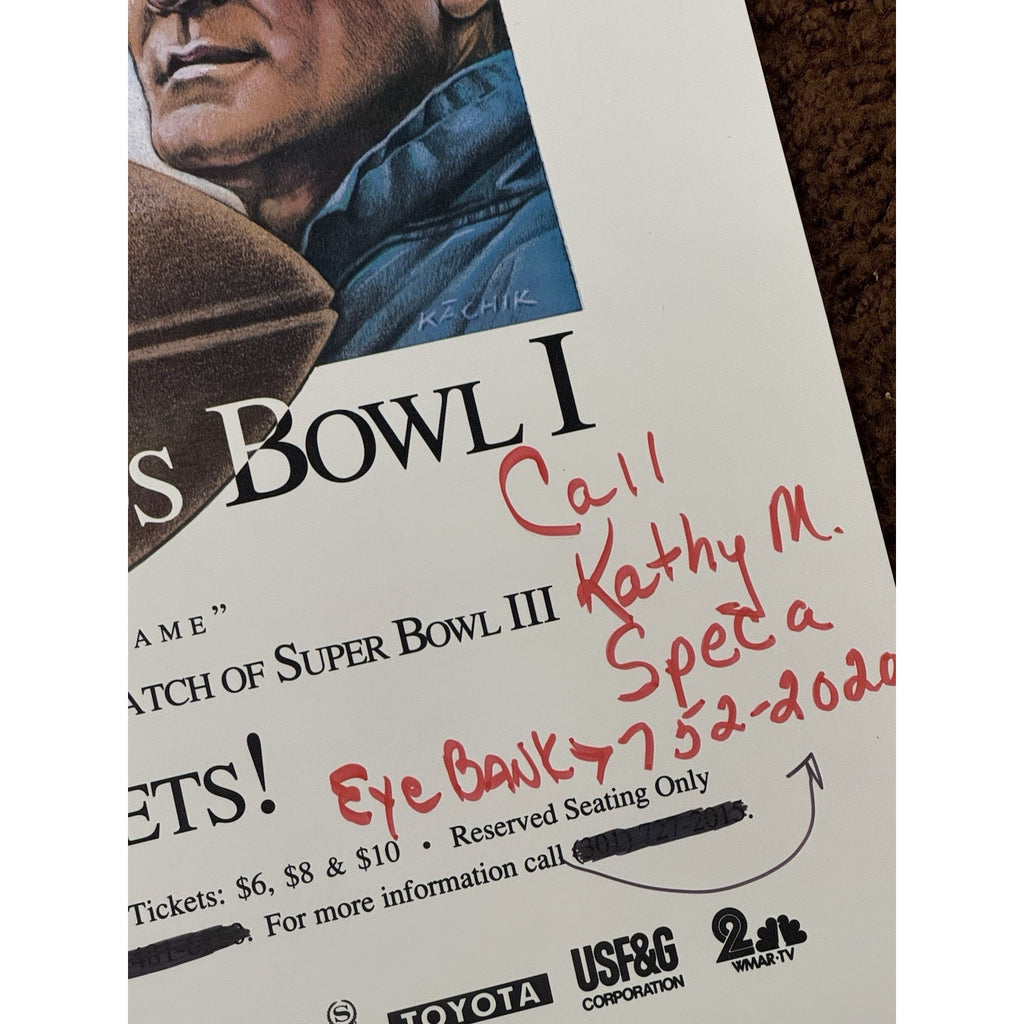 KĀCHIK
S BOWL I
Call
Kathy M.
AME”
ATCH OF SUPER BOWL III
Speca
ETS!
Eye BANK → 752-2020
Tickets: $6, $8 & $10 • Reserved Seating Only
For more information call (301) 727-2015.
S
TOYOTA
USF&G
CORPORATION
2
WMAR-TV